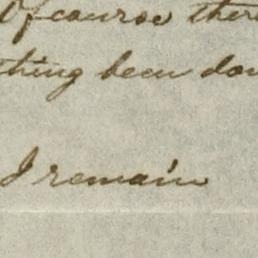 Of course ther
thing been don
I remain